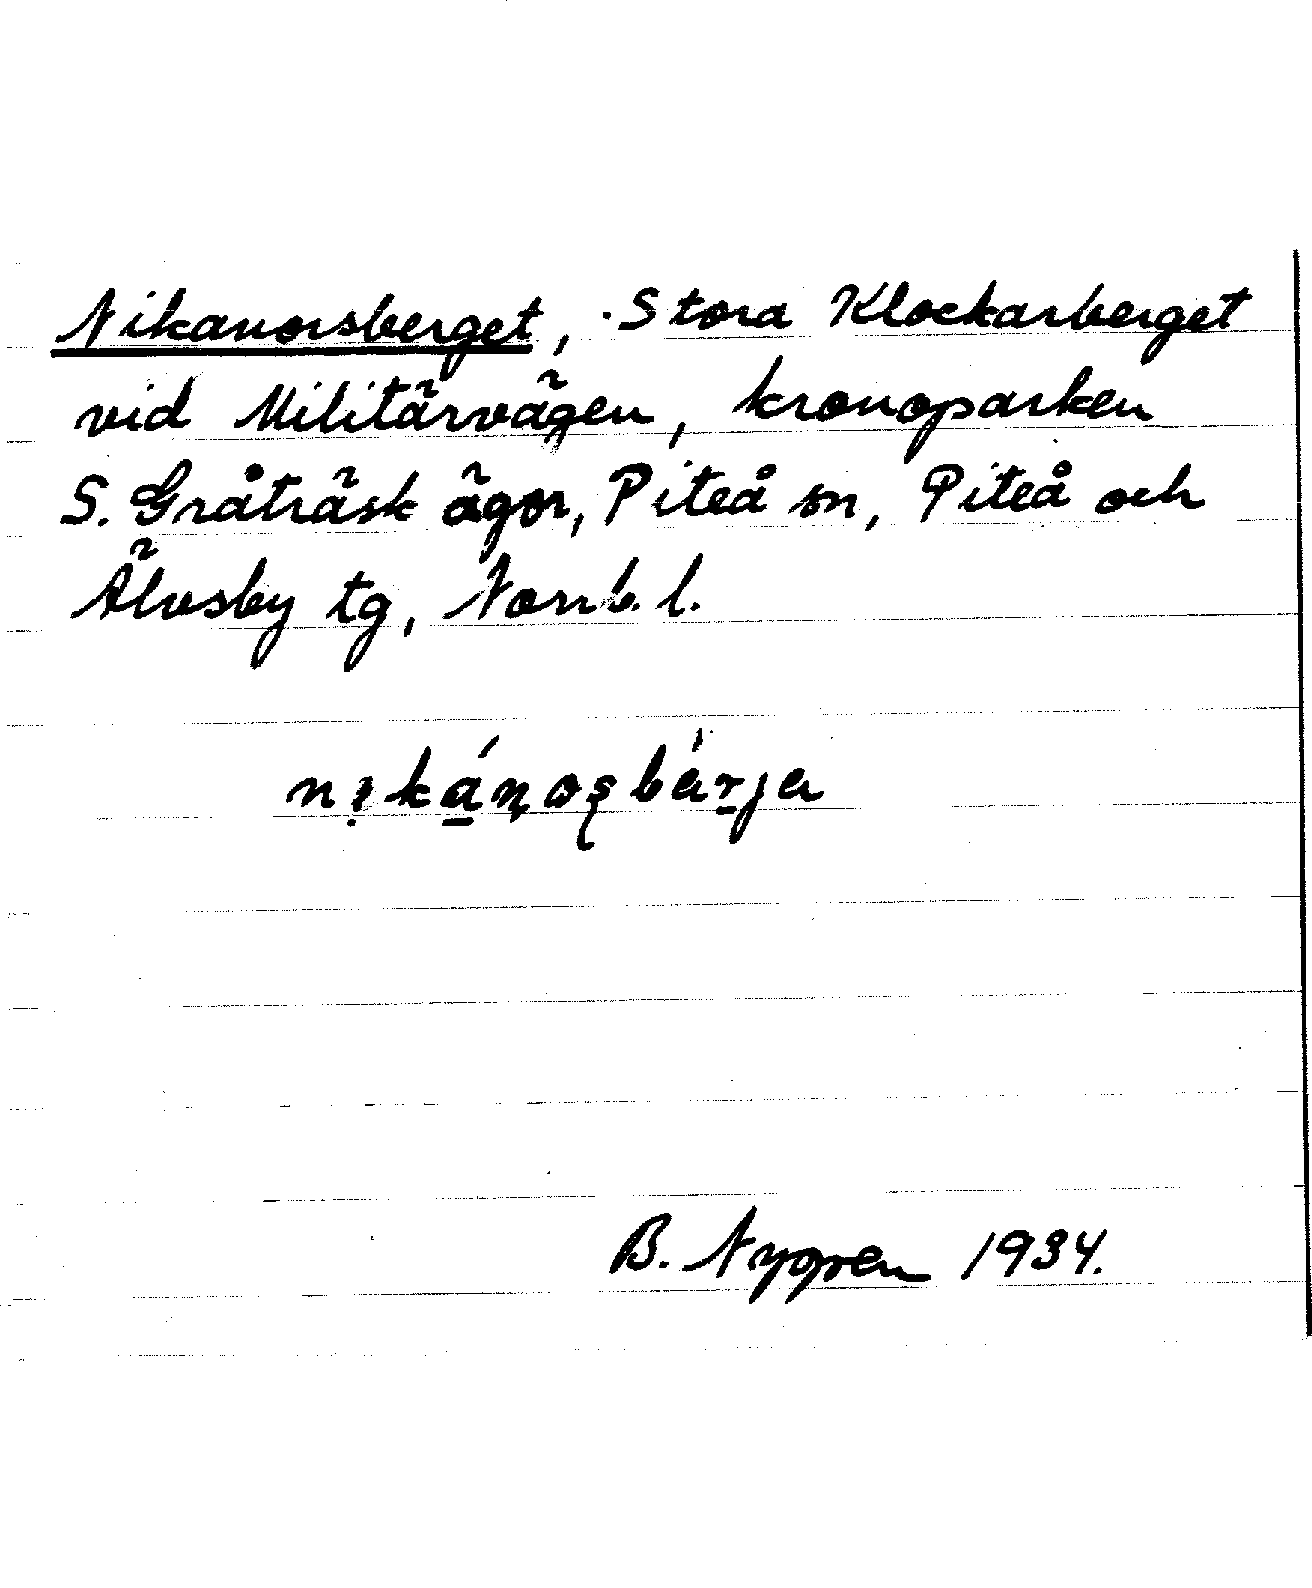 Nikanorsberget, Stora Klockarberget
vid Militärvägen, kronoparken
S. Gråträsk ägor, Piteå sn, Piteå och
Älvsby tg, Norrb. l.
nikánosbárja
B. Nygren 1934.